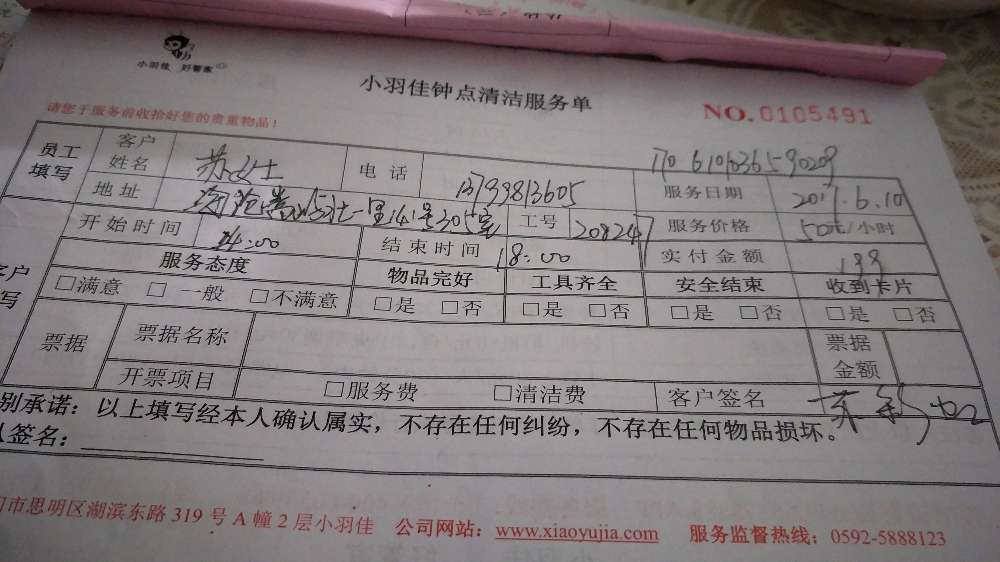 小羽佳 好管家
小羽佳钟点清洁服务单
请您于服务前收拾好您的贵重物品!
NO.0105491
170610103659029
员工填写 客户姓名 苏女士 电话 13799813605 服务日期 2017.6.10
地址 海沧 一里141号305室 工号 208247 服务价格 50元/小时
开始时间 14:00 结束时间 18:00 实付金额 199
客户 写 服务态度 物品完好 工具齐全 安全结束 收到卡片
□满意 □一般 □不满意 □是 □否 □是 □否 □是 □否 □是 □否
票据 票据名称 票据金额
开票项目 □服务费 □清洁费 客户签名 苏
别承诺：以上填写经本人确认属实，不存在任何纠纷，不存在任何物品损坏。
人签名：
门市思明区湖滨东路 319 号 A 幢 2 层小羽佳 公司网站：www.xiaoyujia.com 服务监督热线：0592-5888123